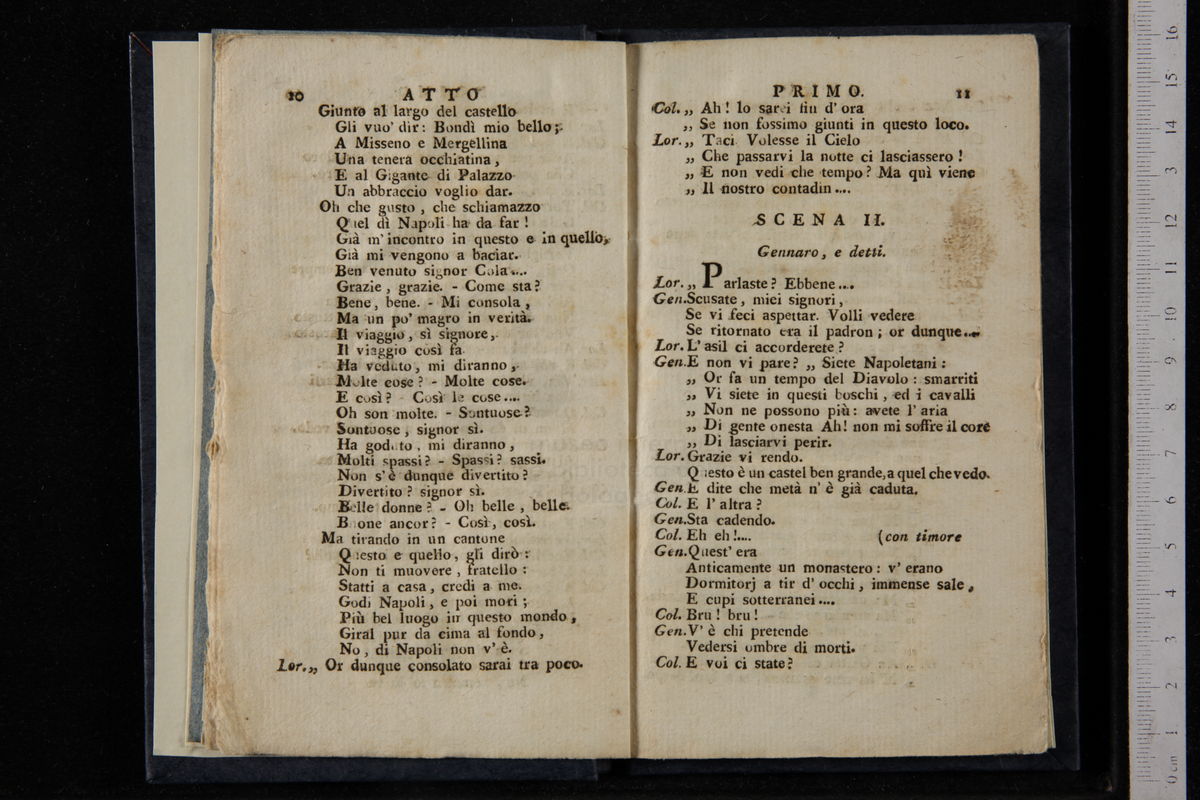 10 ATTO
Giunto al largo del castello
Gli vuo' dir: Bondì mio bello;
A Misseno e Mergellina
Una tenera occhiatina,
E al Gigante di Palazzo
Un abbraccio voglio dar.
Oh che gusto, che schiamazzo
Quel dì Napoli ha da far!
Già m'incontro in questo e in quello,
Già mi vengono a baciar.
Ben venuto signor Cola....
Grazie, grazie. - Come sta?
Bene, bene. - Mi consola,
Ma un po' magro in verità.
Il viaggio, sì signore,
Il viaggio così fa.
Ha veduto, mi diranno,
Molte cose? - Molte cose.
E così? - Così le cose....
Oh son molte. - Sontuose?
Sontuose, signor sì.
Ha goduto, mi diranno,
Molti spassi? - Spassi? sassi.
Non s'è dunque divertito?
Divertito? signor sì.
Belle donne? - Oh belle, belle.
Buone ancor? - Così, così.
Ma tirando in un cantone
Questo e quello, gli dirò:
Non ti muovere, fratello:
Statti a casa, credi a me.
Godi Napoli, e poi mori;
Più bel luogo in questo mondo,
Giral pur da cima al fondo,
No, di Napoli non v'è.
Lor. „ Or dunque consolato sarai tra poco.
PRIMO. 11
Col. „ Ah! lo sarei fin d'ora
„ Se non fossimo giunti in questo loco.
Lor. „ Taci. Volesse il Cielo
„ Che passarvi la notte ci lasciassero!
„ E non vedi che tempo? Ma quì viene
„ Il nostro contadin....
SCENA II.
Gennaro, e detti.
Lor. „ Parlaste? Ebbene....
Gen. Scusate, miei signori,
Se vi feci aspettar. Volli vedere
Se ritornato era il padron; or dunque....
Lor. L'asil ci accorderete?
Gen. E non vi pare? „ Siete Napoletani:
„ Or fa un tempo del Diavolo: smarriti
„ Vi siete in questi boschi, ed i cavalli
„ Non ne possono più: avete l'aria
„ Di gente onesta Ah! non mi soffre il core
„ Di lasciarvi perir.
Lor. Grazie vi rendo.
Questo è un castel ben grande, a quel che vedo.
Gen. E dite che metà n'è già caduta.
Col. E l'altra?
Gen. Sta cadendo.
Col. Eh eh!.... (con timore
Gen. Quest'era
Anticamente un monastero: v'erano
Dormitorj a tir d'occhi, immense sale,
E cupi sotterranei....
Col. Bru! bru!
Gen. V'è chi pretende
Vedersi ombre di morti.
Col. E voi ci state?
16
15
14
13
12
11
10
9
8
7
6
5
4
3
2
1
0 cm